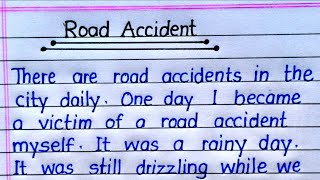 Road Accident
There are road accidents in the
city daily. One day I became
a victim of a road accident
myself. It was a rainy day.
It was still drizzling while we